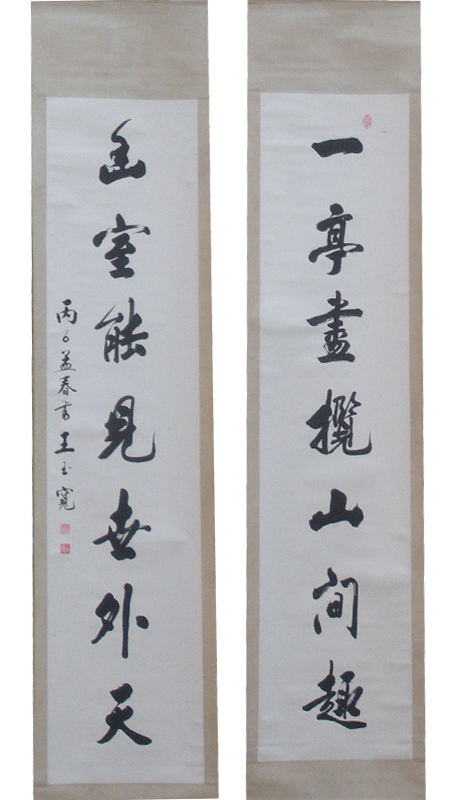 一亭盡攬山間趣
幽室能見世外天
丙子孟春書王玉寬